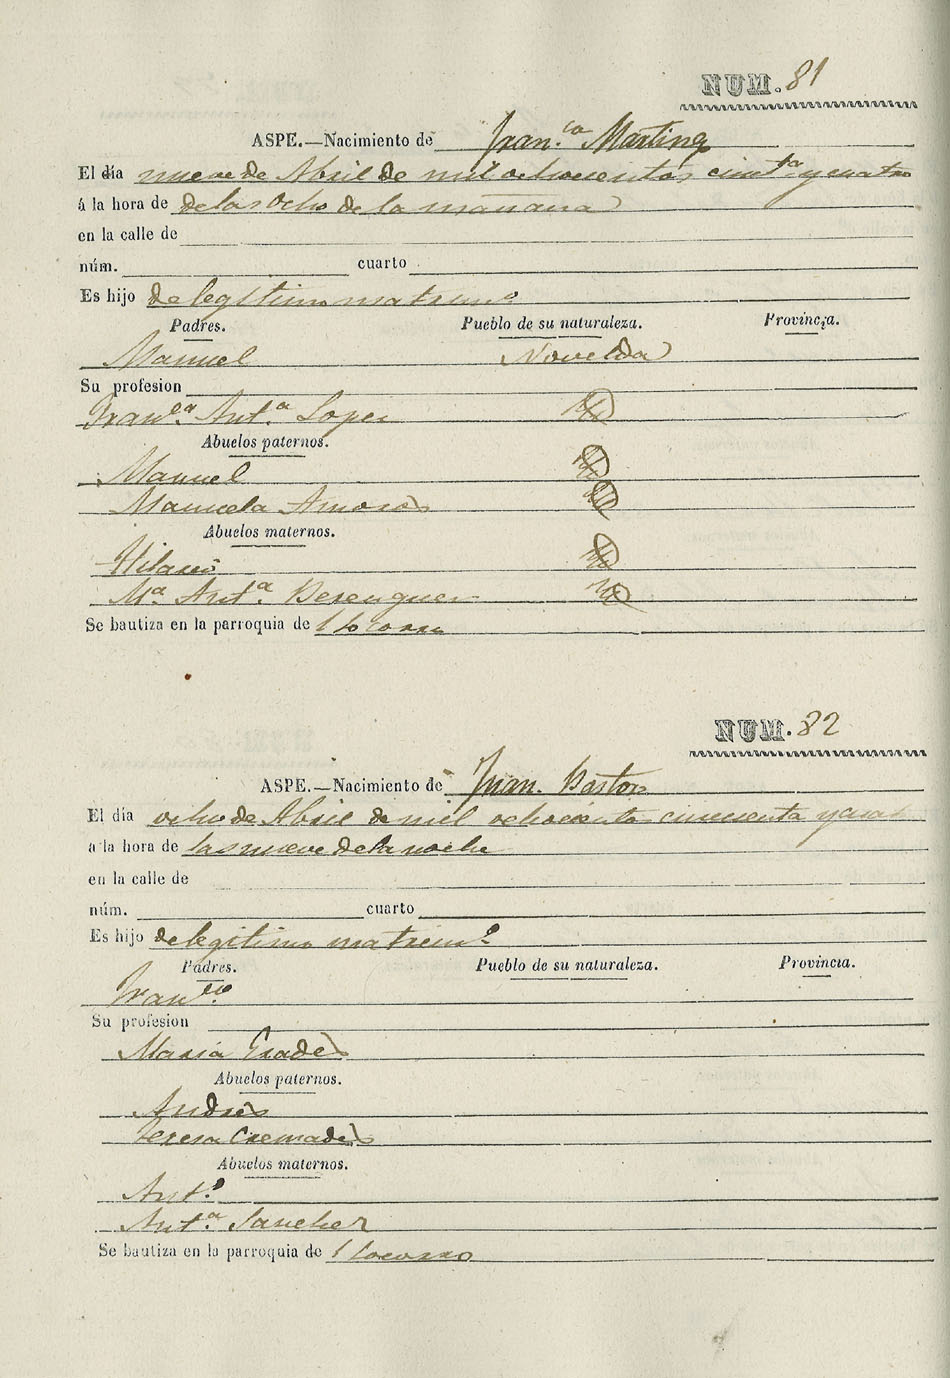 NUM. 81
ASPE.—Nacimiento de Fran.ca Martinez
El día nueve de Abril de mil ochocientos cinc.ta y cuatro
á la hora de de las ocho de la manana
en la calle de
núm. cuarto
Es hijo de legitimo matrim.o
Padres. Pueblo de su naturaleza. Provincia.
Manuel Novelda
Su profesion
Fran.ca Ant.a Lopez
Abuelos paternos.
Manuel
Manuela Amoros
Abuelos maternos.
Hilario
M.a Ant.a Berenguer
Se bautiza en la parroquia de
NUM. 82
ASPE.—Nacimiento de Fran. Pastor
El día ocho de Abril de mil ochocientos cincuenta y cua
á la hora de las nueve de la noche
en la calle de
núm. cuarto
Es hijo de legitimo matrim.o
Padres. Pueblo de su naturaleza. Provincia.
Fran.co
Su profesion
Maria Erades
Abuelos paternos.
Andrés
Teresa Cremades
Abuelos maternos.
Ant.o
Ant.a Sanchez
Se bautiza en la parroquia de l Socorro